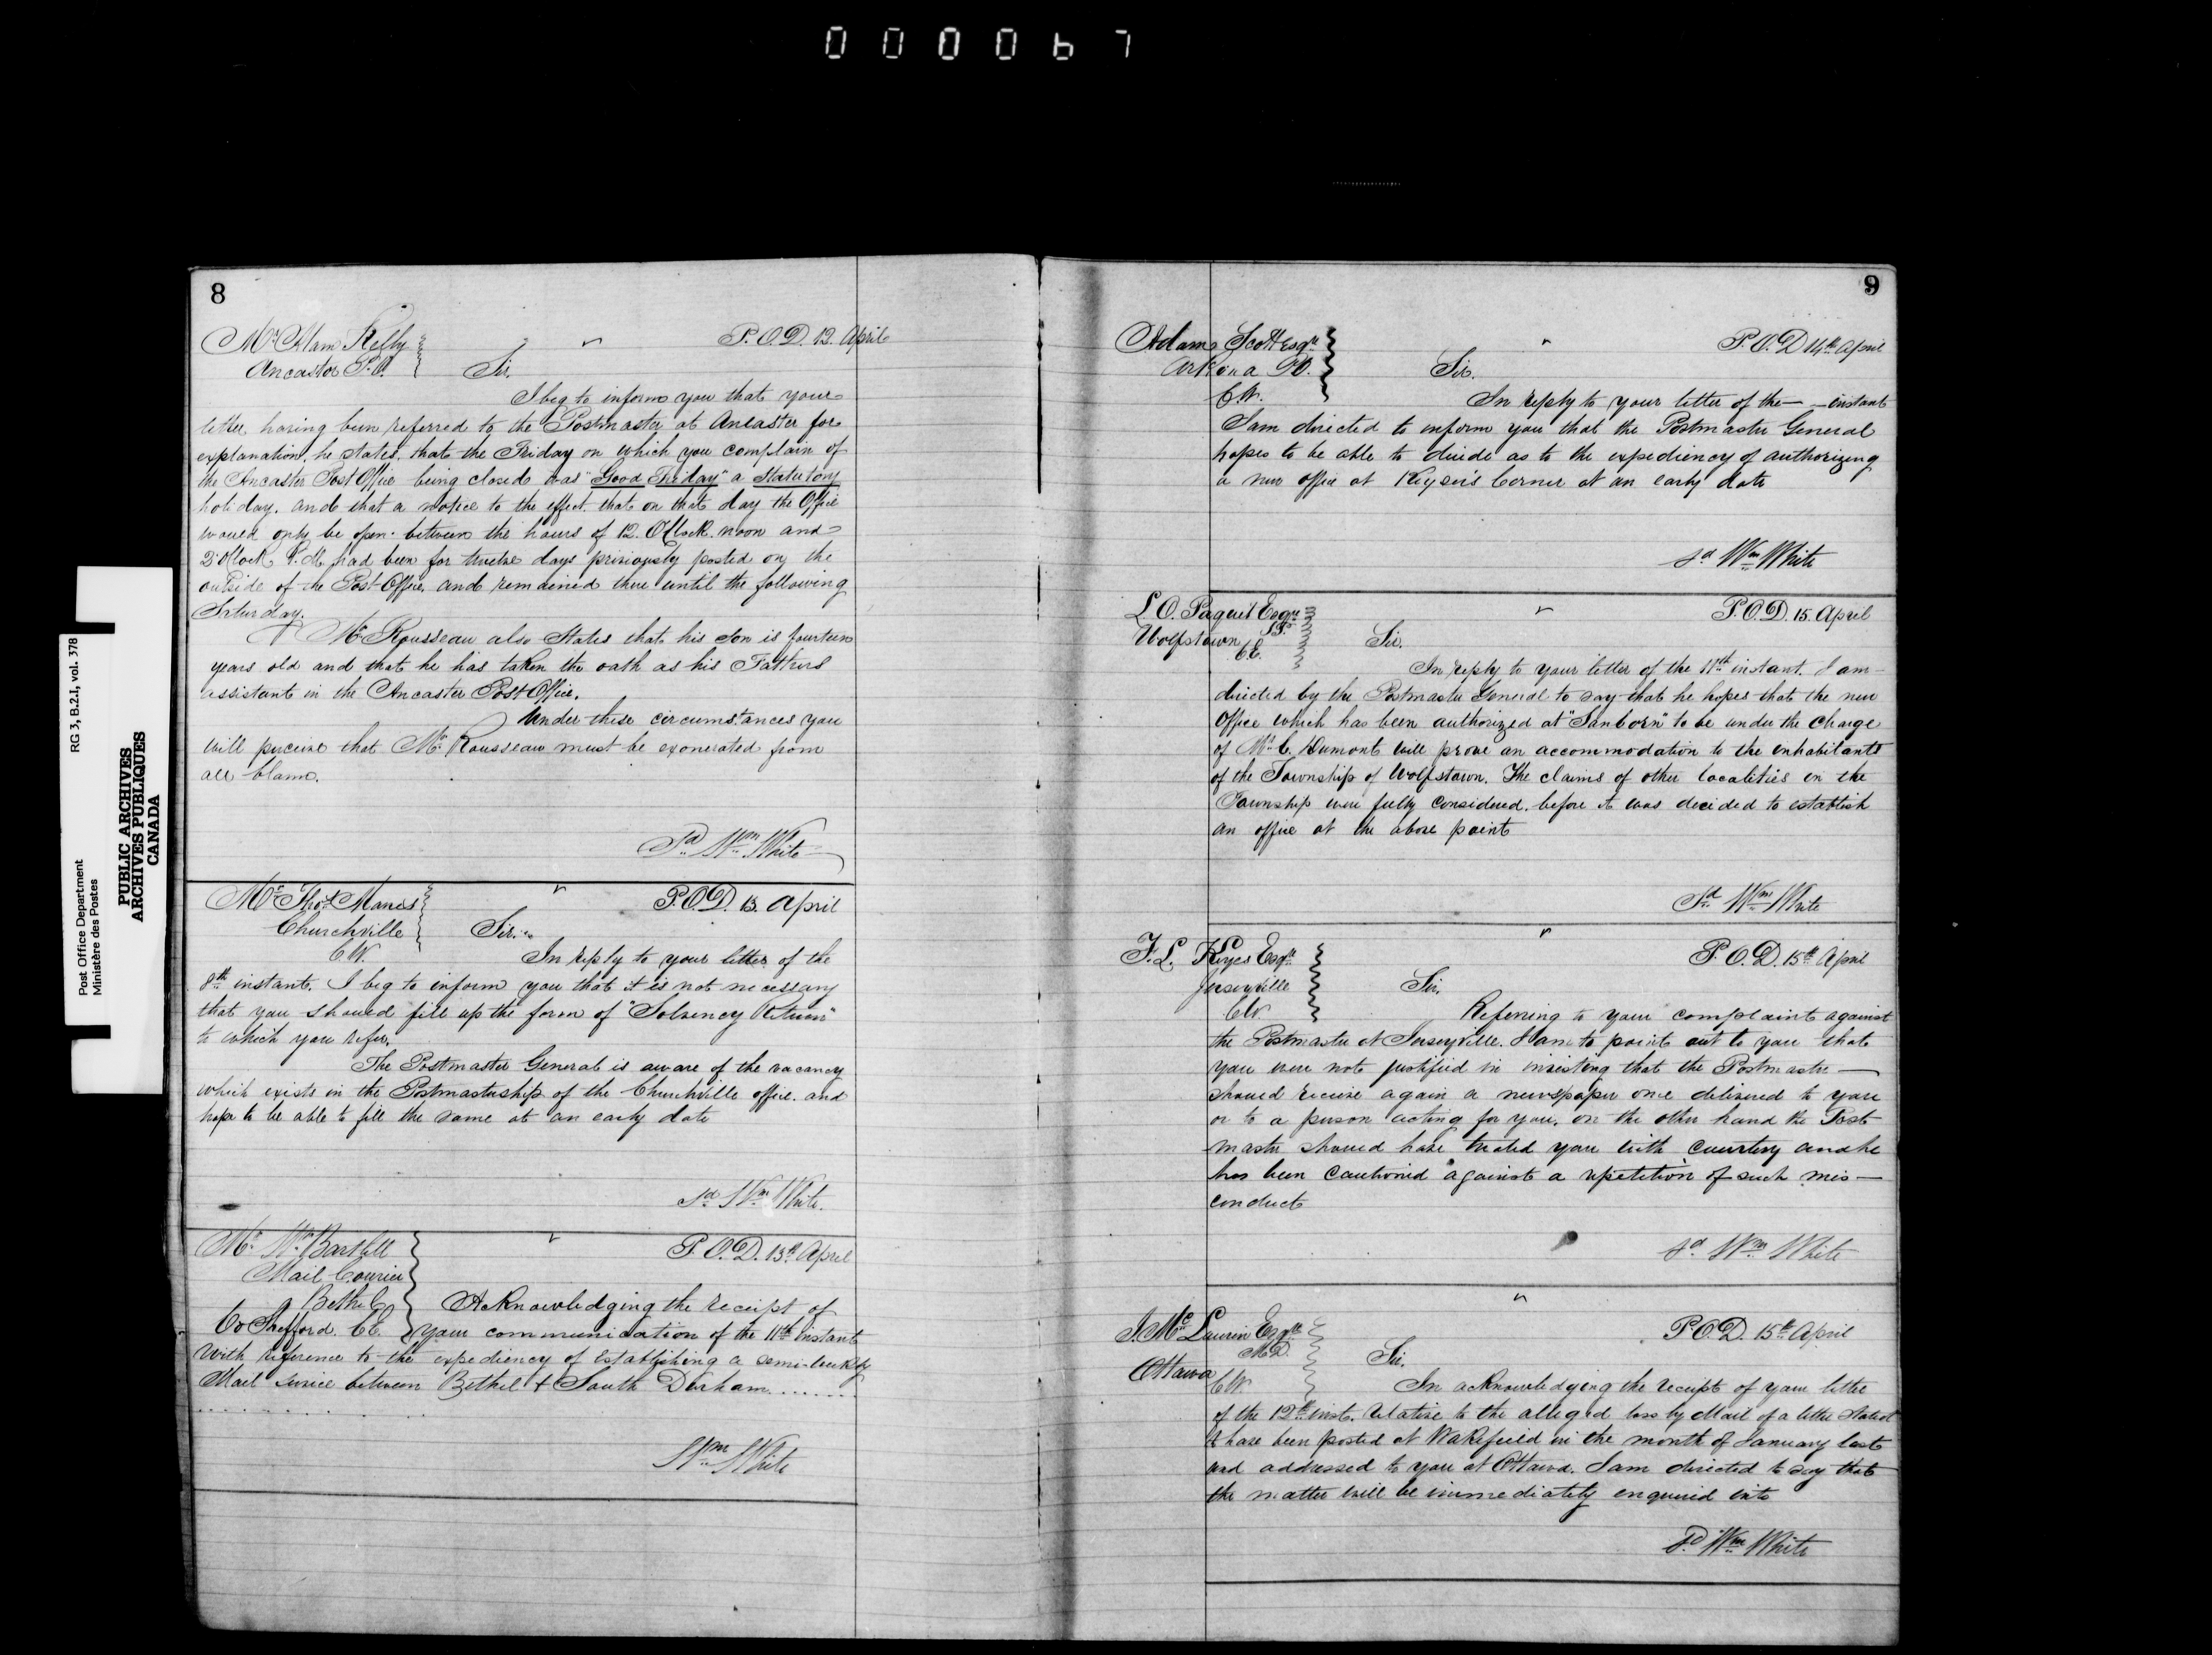 000067
8
Mr Alam Kelly
Ancaster P.O.
P.O.D. 12. April
Sir.
I beg to inform you that your
letter having been referred to the Postmaster at Ancaster for
explanation, he states, that the Friday on which you complain of
the Ancaster Post Office being closed was "Good Friday" a Statutory
holiday, and that a notice to the effect that on that day the Office
would only be open between the hours of 12. O'Clock noon and
2 O'Clock P.M. had been for twelve days previously posted on the
outside of the Post Office, and remained there until the following
Saturday.
Mr Rousseau also States that his Son is fourteen
years old and that he has taken the oath as his Fathers
assistant in the Ancaster Post Office.
Under these circumstances you
will perceive that Mr Rousseau must be exonerated from
all blame.
Sd Wm White
Mr Thos Manes
Churchville
C.W.
P.O.D. 13. April
Sir.
In reply to your letter of the
8th instant. I beg to inform you that it is not necessary
that you should fill up the form of "Solvency Return"
to which you refer.
The Postmaster General is aware of the vacancy
which exists in the Postmastership of the Churchville office. and
hope to be able to fill the same at an early date
Sd Wm White.
Mr Wm
Mail Courier
Bethel
Co Shefford. C.E.
P.O.D. 13th April
Acknowledging the receipt of
your communication of the 11th instant
with reference to the expediency of Establishing a semi-weekly
Mail service between Bethel & South Durham.......
Wm White
9
Adams Scott Esqre
Arkona PO.
C.W.
P.O.D 14th April
Sir.
In reply to your letter of the — instant
I am directed to inform you that the Postmaster General
hopes to be able to decide as to the expediency of authorizing
a new office at Keyser's Corner at an early date
sd Wm White
L O. Paquet Esqre
J.P.
Wolfstown
C.E.
P.O.D. 15. April
Sir.
In reply to your letter of the 11th instant. I am
directed by the Postmaster General to say that he hopes that the new
Office which has been authorized at "Sanborn" to be under the Charge
of Mr C. Dumont will prove an accommodation to the inhabitants
of the Township of Wolfstown. The claims of other localities in the
Township were fully considered. before it was decided to establish
an office at the above point
Sd Wm White
F.L. Keyes Esqre
Jerseyville
C.W.
P.O.D. 15th April
Sir.
Referring to your complaint against
the Postmaster at Jerseyville. I am to point out to you that
you were not justified in insisting that the Postmaster —
should receive again a newspaper once delivered to you
or to a person acting for you, on the other hand the Post
master should have treated you with courtesy and he
has been cautioned against a repetition of such mis—
conduct
sd Wm White
J. McLaurin Esqre
M.D.
Ottawa
C.W.
P.O.D. 15th April
Sir.
In acknowledging the receipt of your letter
of the 12th inst. relative to the alleged loss by Mail of a letter stated
to have been posted at Wakefield in the month of January last
and addressed to you at Ottawa. I am directed to say that
the matter will be immediately enquired into
Sd Wm White
RG 3, B.2.I, vol. 378
Post Office Department
Ministère des Postes
PUBLIC ARCHIVES
ARCHIVES PUBLIQUES
CANADA